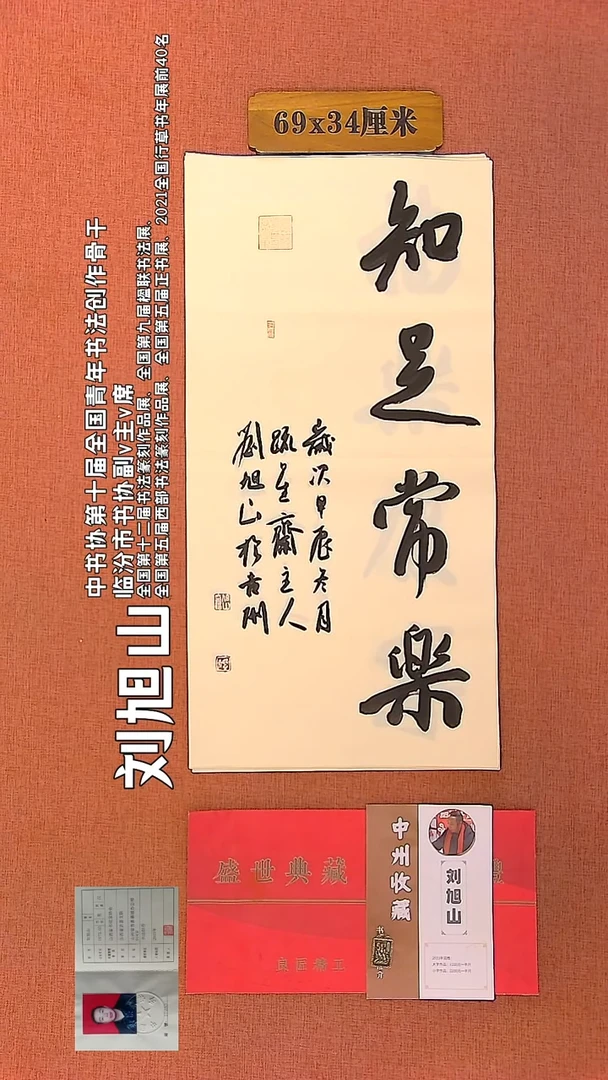 69x34厘米
知足常樂
歲次甲辰冬月
疏星齋主人
劉旭山於古州
刘旭山
中书协第十届全国青年书法创作骨干
临汾市书协副v主v席
全国第十二届书法篆刻作品展、全国第九届楹联书法展、
全国第五届西部书法篆刻作品展、全国第五届正书展、2021全国行草书年展前40名
盛世典藏
中州收藏
刘旭山